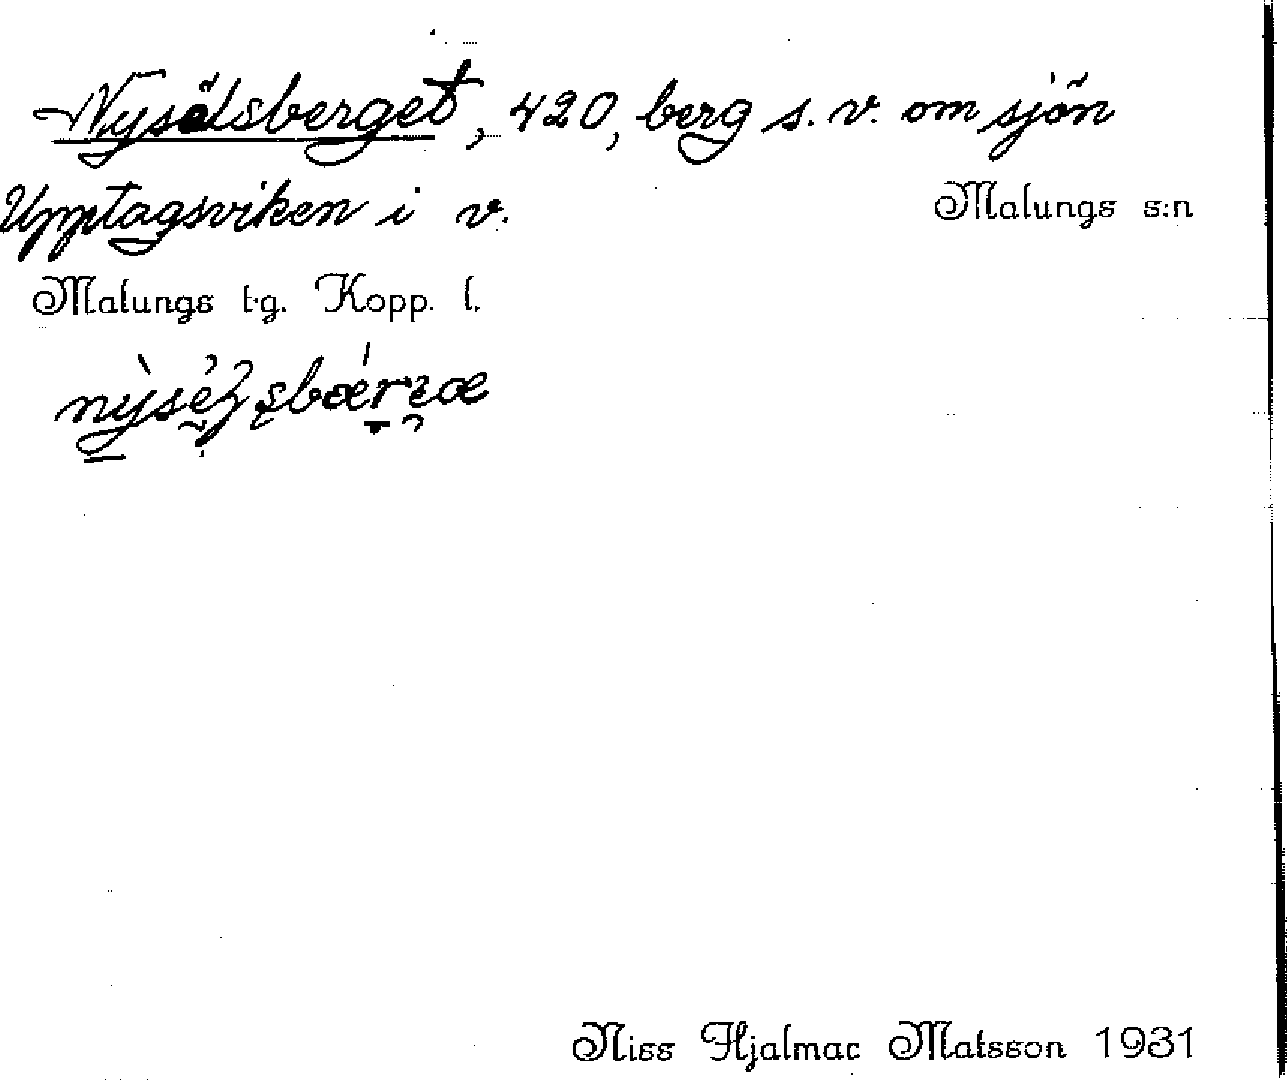 Nysälsberget, 420, berg s.v. om sjön
Upptagsviken i v.
Malungs s:n
Malungs t.g. Kopp. l.
Niss Hjalmar Matsson 1931